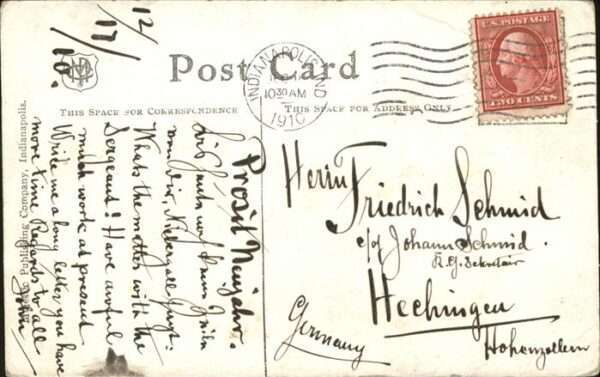 12/
17/
10.
Post Card
INDIANAPOLIS, IND
10 30 AM
1910
U.S. POSTAGE
TWO CENTS
THIS SPACE FOR CORRESPONDENCE
THIS SPACE FOR ADDRESS ONLY.
Publishing Company, Indianapolis.
Prosit Neujahr.
von Dir,
Whats the matter with the
Sergeant? Have awful
much work at present
Write me a long letter, you have
more time Regards to all
Herrn
Friedrich Schmid
c/o Johann Schmid.
Sekretair
Hechingen
Germany
Hohenzollern